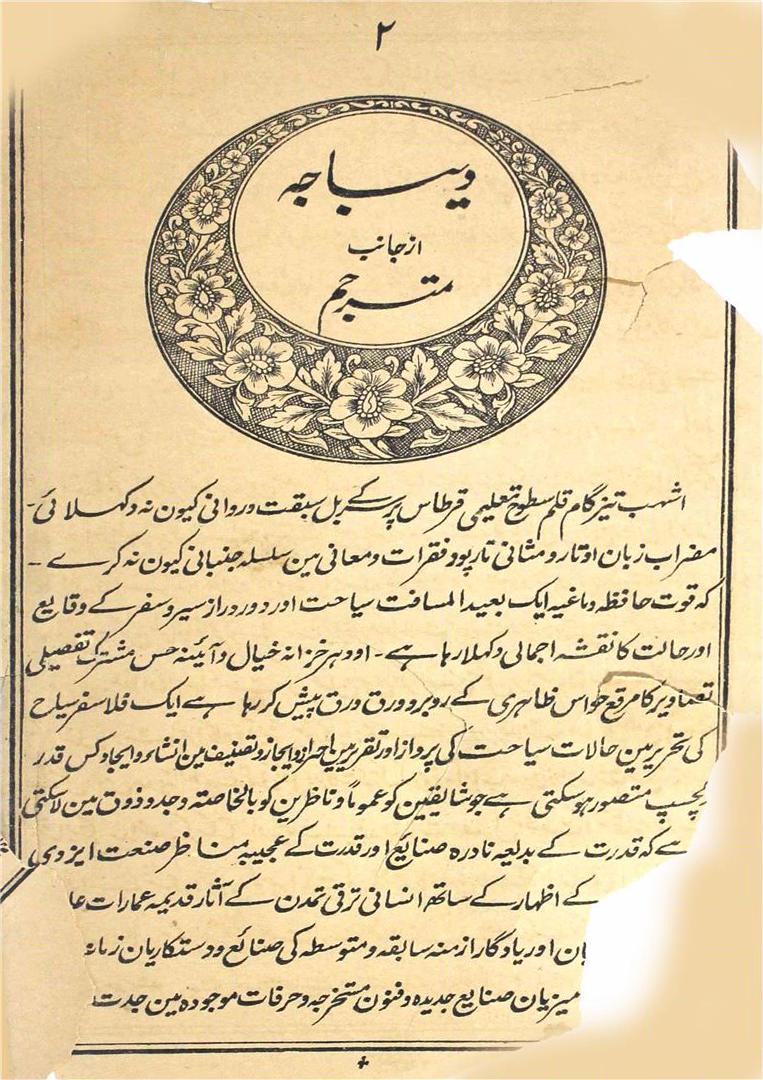 ۲
دیباجہ
از جانب
مترجم
اشہب تیز گام قلم سطوح تعلیمی قرطاس پر سرکے بل سبقت و روانی کیون نہ دکہلائی۔
مضراب زبان اوتار و مثانی تار پود فقرات و معانی مین سلسلہ جنبانی کیون نہ کرے۔
کہ قوت حافظہ دماغیہ ایک بعید المسافت سیاحت اور دور دراز سیر و سفر کے وقایع
اور حالت کا نقشہ اجمالی دکہلا رہا ہے۔ اودہر خزانہ خیال و آئینہ حس مشترک تفصیلی
تصاویر کا مرقع حواس ظاہری کے روبرو ورق ورق پیش کر رہا ہے ایک فلاسفر سیاح
کی تحریر مین حالات سیاحت کی پرواز اور تقریر مین احراز و ایجاز و تصنیف مین انشاء و ایجاد کس قدر
لچسپ متصور ہو سکتی ہے جو شایقین کو عموماً و ناظرین کو بالخاصتہ وجد و ذوق مین لا سکتی
ہے کہ قدرت کے بدیعہ نادرہ صنایع اور قدرت کے عجیبہ مناظر صنعت ایزدی
کے اظہار کے ساتھ انسانی ترقی تمدن کے آثار قدیمہ عمارات عا
ان اور یادگار ازمنہ سابقہ و متوسطہ کی صنائع و دستکاریان زمانہ
میزیان صنایع جدیدہ و فنون مستخرجہ و حرفات موجودہ مین جدت